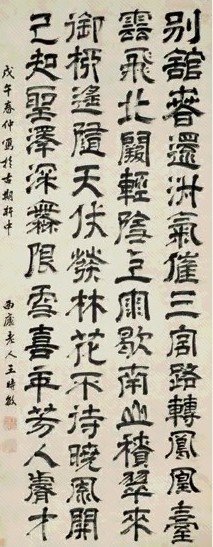 別舘春還淑氣催三宮路轉鳳凰臺
雲飛北闕輕陰雨歇南山積翠來
御柳遙隨天仗發林花不待曉風開
已知聖澤深無限更喜年芳入睿才
戊午春仲寫於古期齋中 西廬老人王時敏